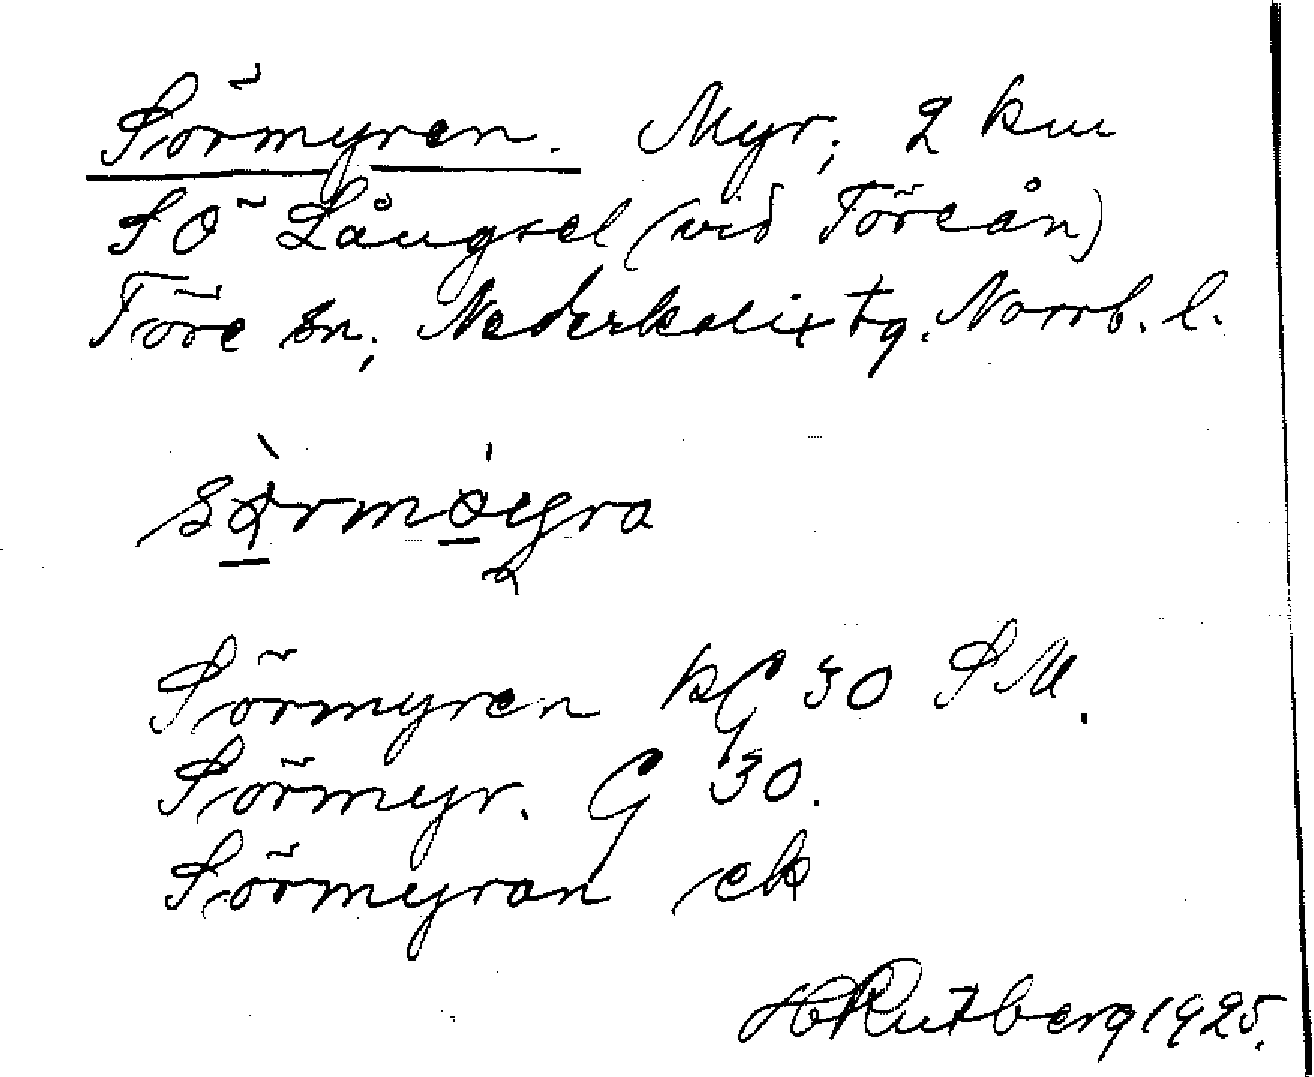 Sörmyren. Myr, 2 km
SÖ Långsel (vid Töreån)
Töre sn, Nederkalix tg. Norrb. l.
Sörmyren kG 30 SM.
Sörmyr. G 30.
Sörmyran ek
H Rutberg 1925.